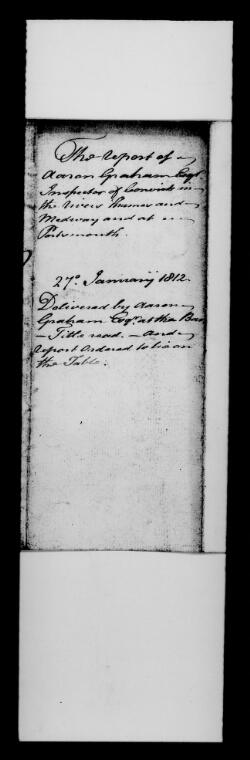 The report of
Aaron Graham Esqr
Inspector of Convicts in
the rivers Thames and
Medway and at
Portsmouth.
27o. January 1812.
Delivered by Aaron
Graham Esqr. at the Bar
- Title read. - and
report Ordered to lie on
the Table.